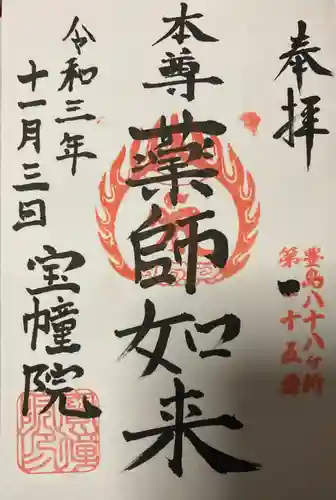 奉拝
豊島八十八ヶ所
第十五番
本尊
薬師如来
令和三年
十一月三日
宝幢院